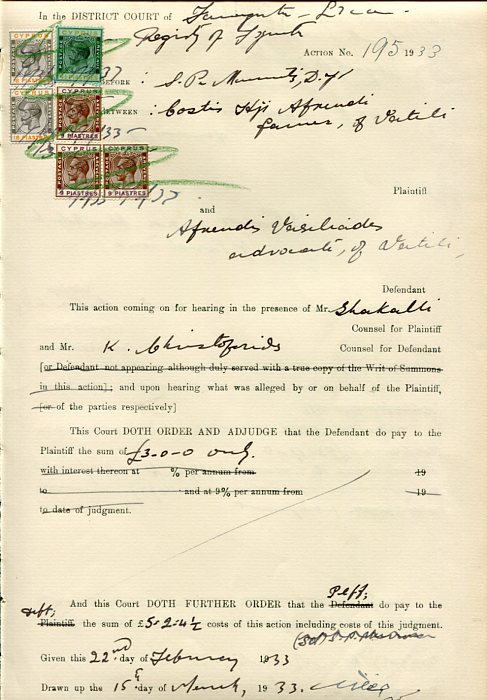 In the DISTRICT COURT of Famagusta - Larnaca
Registry of
ACTION No. 195 1933
BEFORE :
BETWEEN : Costis Hji Afxendi
farmer, of Vatili
CYPRUS
POSTAGE REVENUE
18 PIASTRES
CYPRUS
CYPRUS
18 PIASTRES
CYPRUS
9 PIASTRES
CYPRUS CYPRUS
9 PIASTRES 9 PIASTRES
Plaintiff
and
Afxendis Vasiliades
advocate, of Vatili,
Defendant
This action coming on for hearing in the presence of Mr. Shakalli
Counsel for Plaintiff
and Mr. K. Christoforides Counsel for Defendant
[or Defendant not appearing although duly served with a true copy of the Writ of Summons
in this action]; and upon hearing what was alleged by or on behalf of the Plaintiff,
[or of the parties respectively]
This Court DOTH ORDER AND ADJUDGE that the Defendant do pay to the
Plaintiff the sum of £3-0-0 only.
with interest thereon at % per annum from 19
to and at 9% per annum from 19
to date of judgment.
Plff;
And this Court DOTH FURTHER ORDER that the Defendant do pay to the
Deft;
Plaintiff the sum of £5-2-4½ costs of this action including costs of this judgment.
(Sd)
Given this 22nd day of February 1933
Drawn up the 15th day of March, 1933.